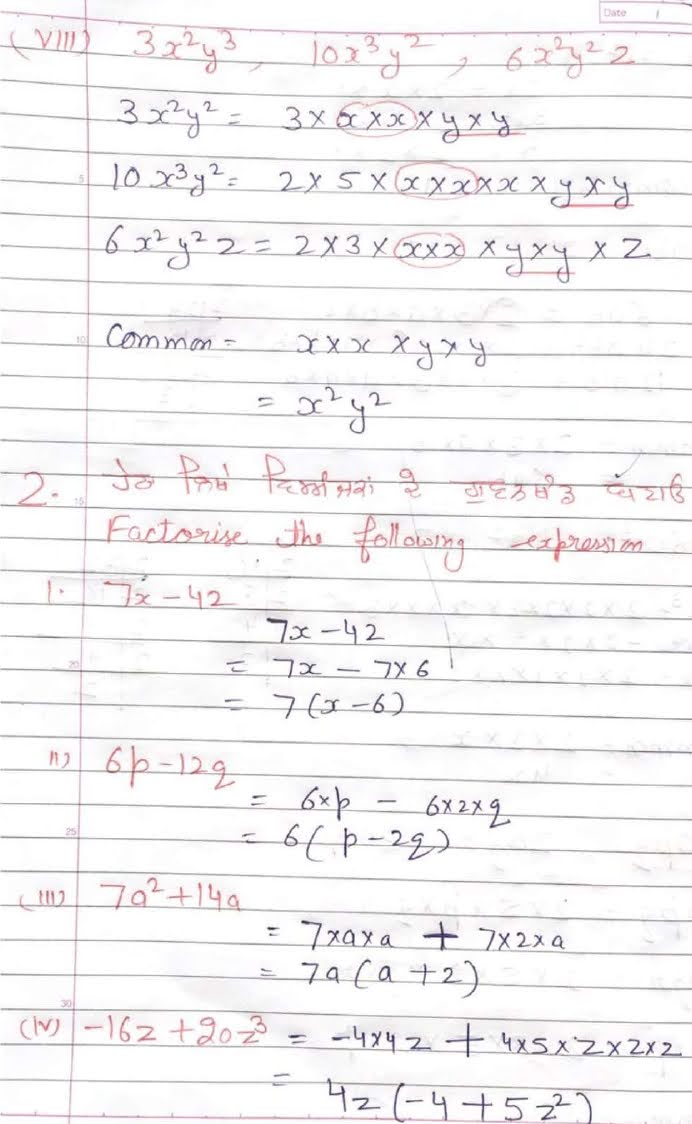 Date
(VIII) 3x²y³, 10x³y², 6x²y²z
3x²y² = 3 × x × x × y × y
5 10x³y² = 2 × 5 × x × x × x × y × y
6x²y²z = 2 × 3 × x × x × y × y × z
10 Common = x × x × y × y
= x²y²
2. ਹੇਠ ਲਿਖੇ ਦੇ ਗੁਣਨਖੰਡ
15
Factorise the following expression
1. 7x - 42
7x - 42
20 = 7x - 7×6
= 7(x - 6)
II) 6p - 12q
= 6×p - 6×2×q
25 = 6(p - 2q)
(III) 7a² + 14a
= 7×a×a + 7×2×a
= 7a(a + 2)
30
(IV) -16z + 20z³ = -4×4z + 4×5×z×z×z
= 4z(-4 + 5z²)